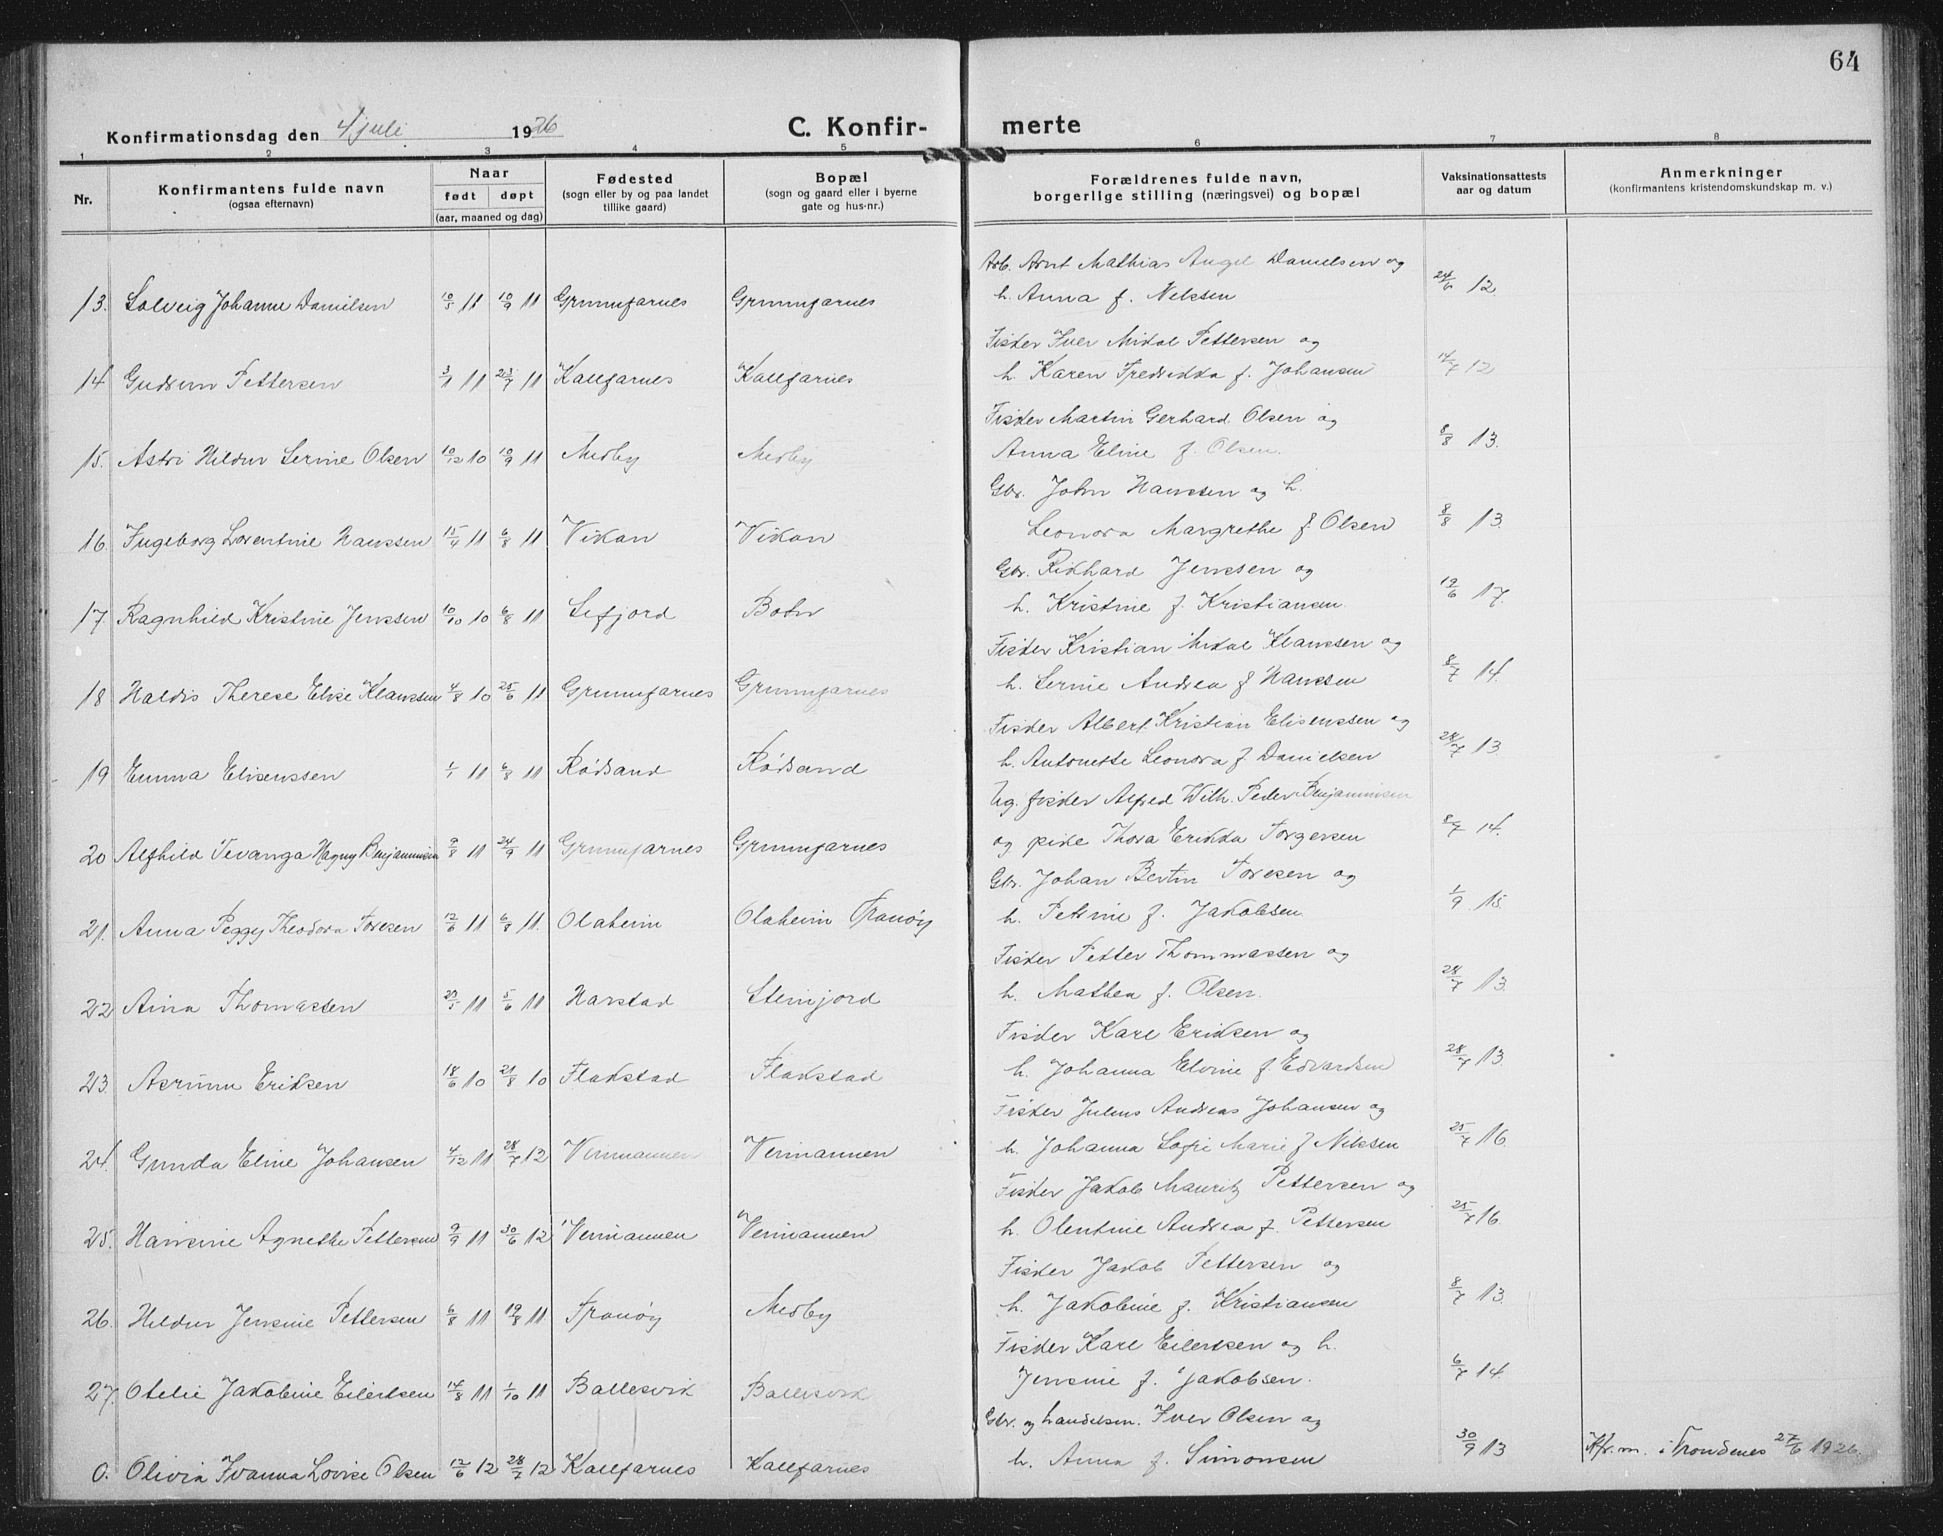 64
Konfirmationsdag den 4 juli 1926 C. Konfir- merte
1 2 3 4 5 6 7 8
Nr. Konfirmantens fulde navn (ogsaa efternavn) Naar født døpt (aar, maaned og dag) Fødested (sogn eller by og paa landet tillike gaard) Bopæl (sogn og gaard eller i byerne gate og hus-nr.) Forældrenes fulde navn, borgerlige stilling (næringsvei) og bopæl Vaksinationsattests aar og datum Anmerkninger (konfirmantens kristendomskundskap m. v.)
Arb. Arnt Mathias Angel Danielsen og
13. Solveig Johanne Danielsen 10/5 11 10/9 11 Grunnfarnes Grunnfarnes h. Anna f. Nilssen 24/6 12
Fisker Iver Mikal Pettersen og
14 Gudrun Pettersen 3/1 11 23/7 11 Kaldfarnes Kaldfarnes h. Karen Fredrikka f. Johansen 14/7 12
Fisker Martin Gerhard Olsen og
15. Astri Hildur Serine Olsen 10/12 10 10/9 11 Medby Medby Anna Eline f. Olsen. 8/8 13.
Gbr. John Hanssen og h.
16. Ingeborg Lorentine Hanssen 15/4 11 6/8 11 Vikan Vikan Leonora Margrethe f. Olsen 8/8 13.
Gbr. Rikhard Jenssen og
17 Ragnhild Kristine Jenssen 10/10 10 6/8 11 Sifjord Botn h. Kristine f. Kristiansen. 19/6 17.
Fisker Kristian Mikal Klaussen og
18 Haldis Therese Elise Klaussen 4/8 10 25/6 11 Grunnfarnes Grunnfarnes h. Serine Andrea f. Hanssen 8/7 14.
Fisker Albert Kristian Elisenssen og
19 Emma Elisenssen 1/1 11 6/8 11 Rødsand Rødsand h. Antonette Leonora f. Danielsen 28/7 13
Ug. fisker Alfred Wilh. Peder Benjaminsen
20 Alfhild Tevanga Magny Benjaminsen 9/8 11 24/9 11 Grunnfarnes Grunnfarnes og pike Thora Erikka Torgersen 8/7 14.
Gbr. Johan Bertin Toresen og
21. Anna Peggy Theodora Toresen 12/6 11 6/8 11. Olaheim Olaheim Tranøy h. Petrine f. Jakobsen 1/9 15
Fisker Petter Thommassen og
22 Aina Thomassen 27/5 11 5/6 11 Harstad Steinfjord h. Mathea f. Olsen. 28/7 13.
Fisker Karl Eriksen og
23. Asrunn Eriksen 18/6 10 21/8 10 Flakstad Flakstad h. Johanna Elvine f. Edvardsen 28/7 13.
Fisker Julius Andreas Johansen og
24. Gunda Eline Johansen 4/12 11 28/7 12 Veimannen Veimannen h. Johanna Sofie Marie f. Nilssen 25/7 16
Fisker Jakob Mauritz Pettersen og
25. Hansine Agnethe Pettersen 9/9 11 30/6 12 Veimannen Veimannen h. Olentine Andrea f. Pettersen 25/7 16.
Fisker Jakob Pettersen og
26. Hildur Jensine Pettersen 6/8 11 19/8 11. Tranøy Medby h. Jakobine f. Kristiansen 8/7 13.
Fisker Karl Eilertsen og h.
27. Otelie Jakobine Eilertsen 14/8 11 1/10 11 Ballesvik Ballesvik Jensine f. Jakobsen. 6/7 14.
Gbr. og handelsm. Iver Olsen og
0. Olivia Ivanna Lovise Olsen 12/6 12 28/7 12 Kaldfarnes Kaldfarnes h. Anna f. Simonsen 30/9 13 Kfr.m. i Trondenes 27/6 1926.